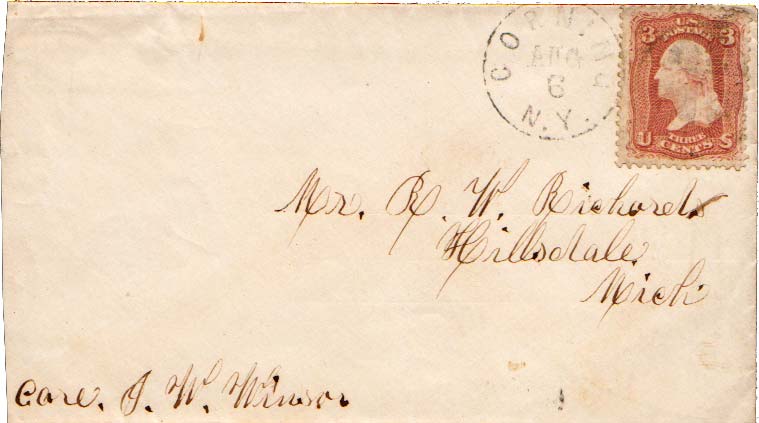 CORNING
AUG
6
N.Y.
U.S.
POSTAGE
3 3
THREE
CENTS
U S
Mr. R. W. Richards
Hillsdale
Mich
Care. J. W. Winsor